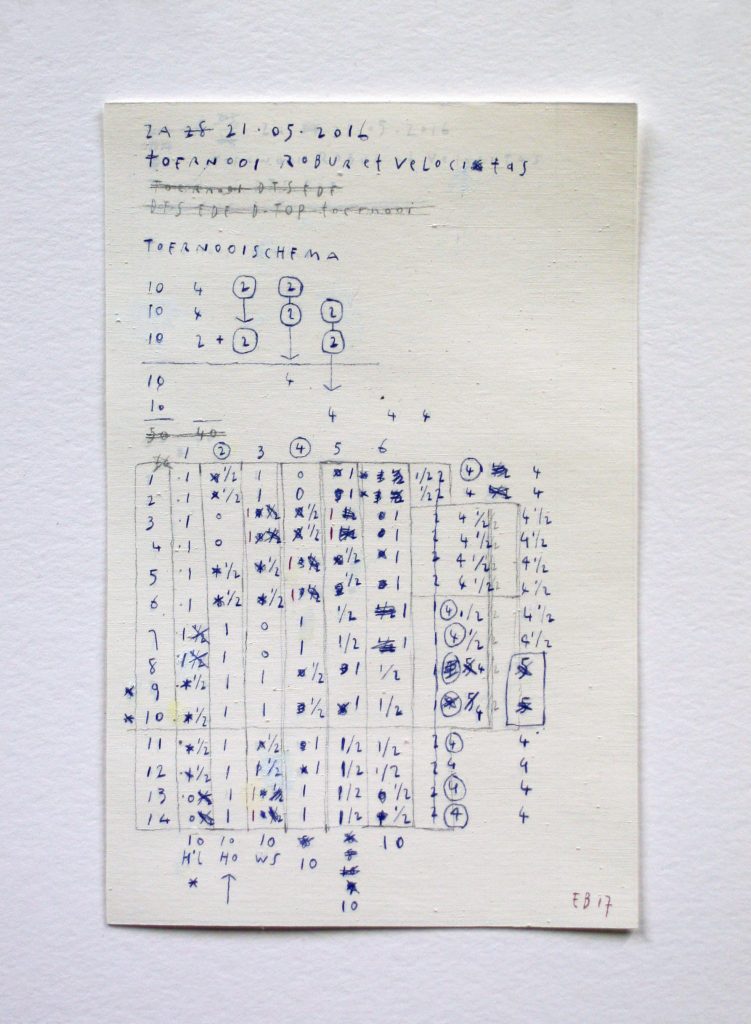 ZA 28 21.05.2016
TOERNOOI ROBUR et VELOCITAS
TOERNOOI DTS EDE
DTS EDE D-TOP toernooi
TOERNOOISCHEMA
10 4 2 2
10 4 2 2
10 2 + 2 2
10 4
10 4 4 4
50 40
1 2 3 4 5 6
1 1 1/2 1 0 1 1/2 2 4 4
2 1 1/2 1 0 1 1/2 2 4 4
3 1 0 1 1/2 1 1 2 4 1/2 4 1/2
4 1 0 1 1/2 1 1 2 4 1/2 4 1/2
5 1 1/2 1/2 1 1/2 1 2 4 1/2 4 1/2
6 1 1/2 1/2 1 1/2 1 2 4 1/2 4 1/2
7 1 1 0 1 1/2 1 1 4 1/2 4 1/2
8 1 1 0 1 1/2 1 1 4 1/2 4 1/2
9 1/2 1 1 1/2 1 1/2 1 4 5
10 1/2 1 1 1/2 1 1/2 1 4 5
11 1/2 1 1/2 1 1/2 1/2 2 4 4
12 1/2 1 1/2 1 1/2 1/2 2 4 4
13 0 1 1/2 1 1/2 1/2 2 4 4
14 0 1 1 1 1/2 1/2 2 4 4
10 10 10 10 10 10
H'L HO WS
EB 17